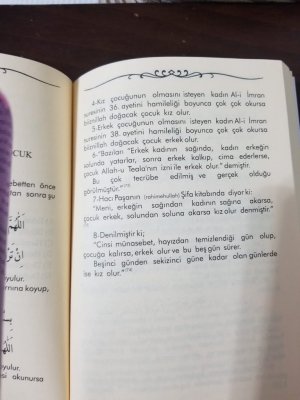 OCUK
ebetten önce
sonra şu
اَللّٰهُمَّ
yulur.
rnına koyup,
yulur.
si okunursa
4-Kız çocuğunun olmasını isteyen kadın Al-i İmran
suresinin 36. ayetini hamileliği boyunca çok çok okursa
biiznillah doğacak çocuk kız olur.
5-Erkek çocuğunun olmasını isteyen kadın Al-i İmran
suresinin 38. ayetini hamileliği boyunca çok çok okursa
biiznillah doğacak çocuk erkek olur.
6-"Bazıları "Erkek kadının sağından, kadın erkeğin
solunda yatarlar, sonra erkek kalkıp, cima ederlerse,
çocuk Allah-u Teala'nın izni ile erkek olur." demiştir.
Bu çok tecrübe edilmiş ve gerçek olduğu
görülmüştür."
7-Hacı Paşanın (rahimehullah) Şifa kitabında diyor ki:
"Meni, erkeğin sağından kadının sağına akarsa,
çocuk erkek, solundan soluna akarsa kız olur denmiştir."
8-Denilmiştir ki;
"Cinsi münasebet, hayızdan temizlendiği gün olup,
çocuğa kalırsa, erkek olur ve bu beş gün sürer.
Beşinci günden sekizinci güne kadar olan günlerde
ise kız olur."